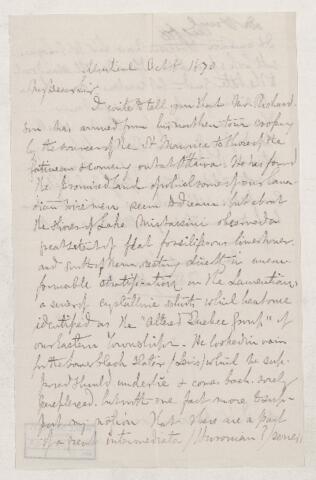 Montreal Oct 8 1870
My dear Sir
I write to tell you that Mr. Richard-
son has arrived from his northern tour crossing
by the sources of the St Maurice to those of the
Gatineau & coming out at Ottawa. He has found
the Promised Land of which some of our Cana-
dian wise men seem to dream: but about
the shores of Lake Mistassini observed a
great extent of flat fossiliferous limestones
and north of them, resting directly in uncon-
formable stratification on the Laurentian,
a series of crystalline schists which he at once
identified as the "Altered Quebec Group" of
our Eastern Townships. He looked in vain
for the lower black slates which he sup-
posed should underlie & come back sorely
perplexed, but with one fact more to sup-
port my notion that these are a part
of a great intermediate (Huronian?) series